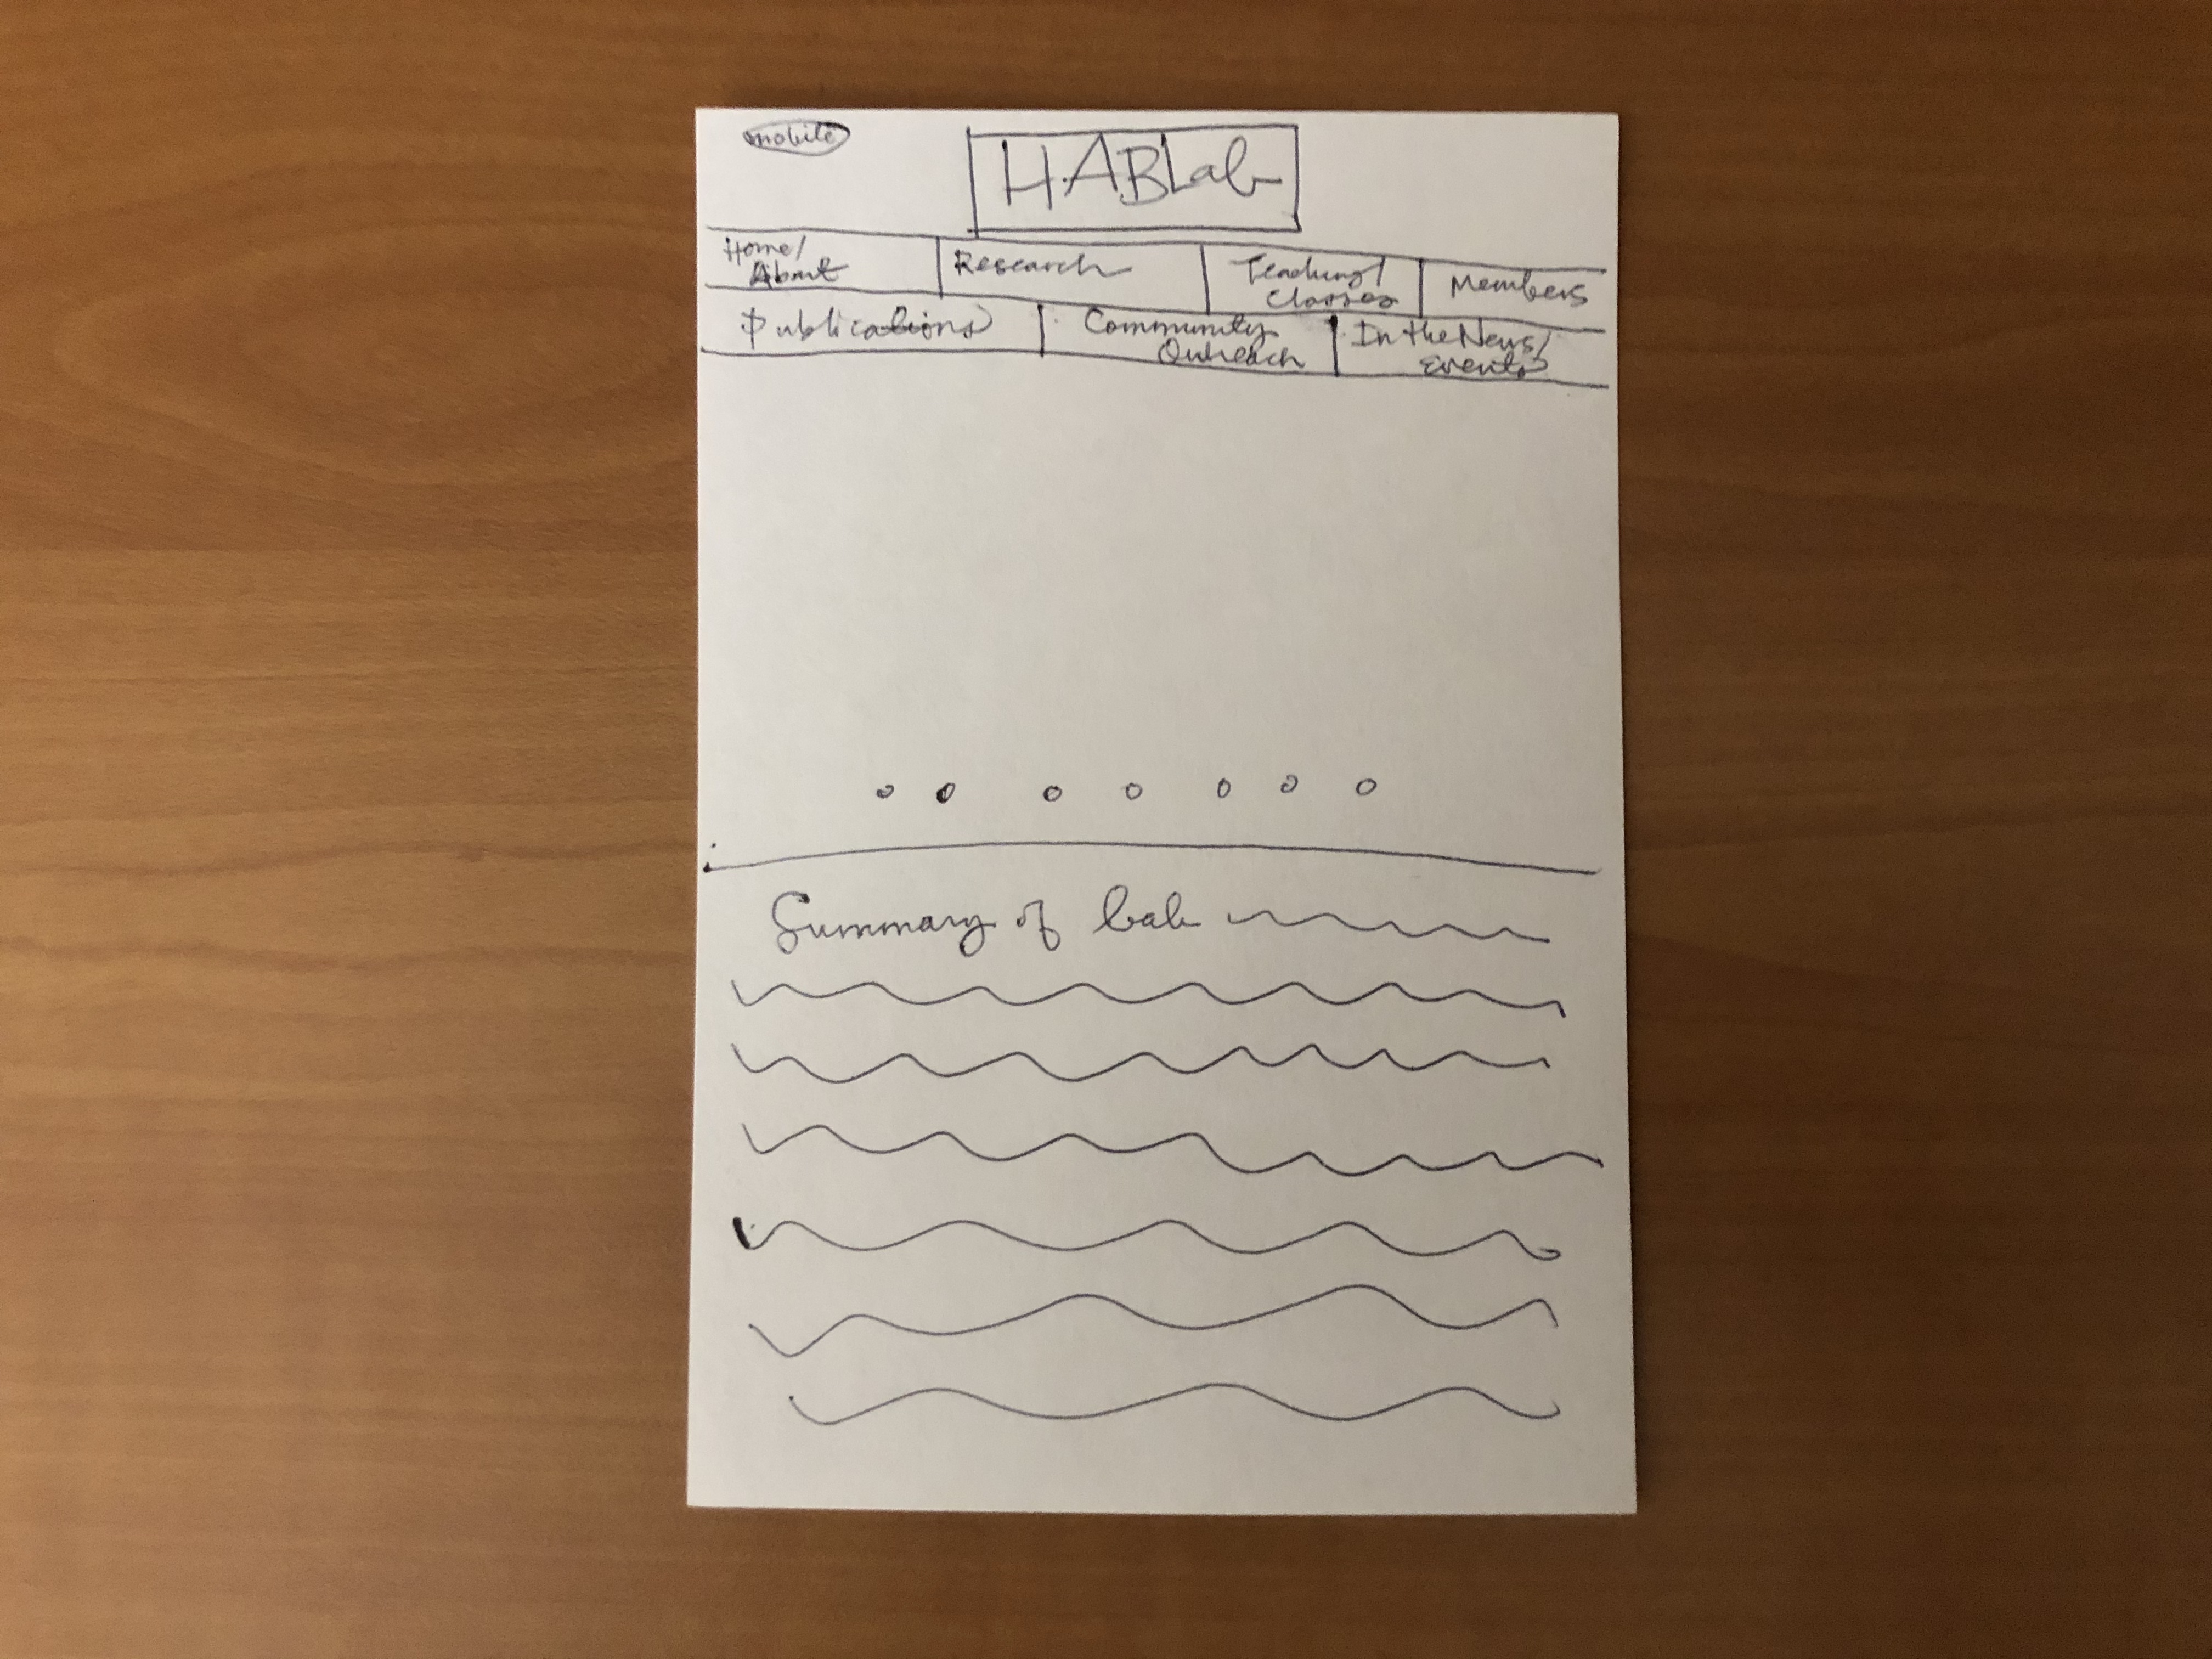 mobile
HABLab
Home/
About
Research
Teaching/
Classes
Members
Publications
Community
Outreach
In the News/
Events
Summary of lab